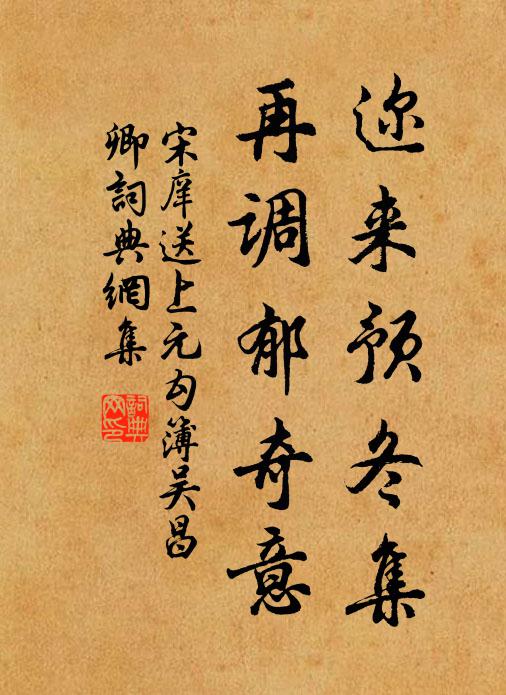 迩来预冬集
再调郁奇意
宋庠送上元勾簿吴昌
卿詞典網集
詞典网印